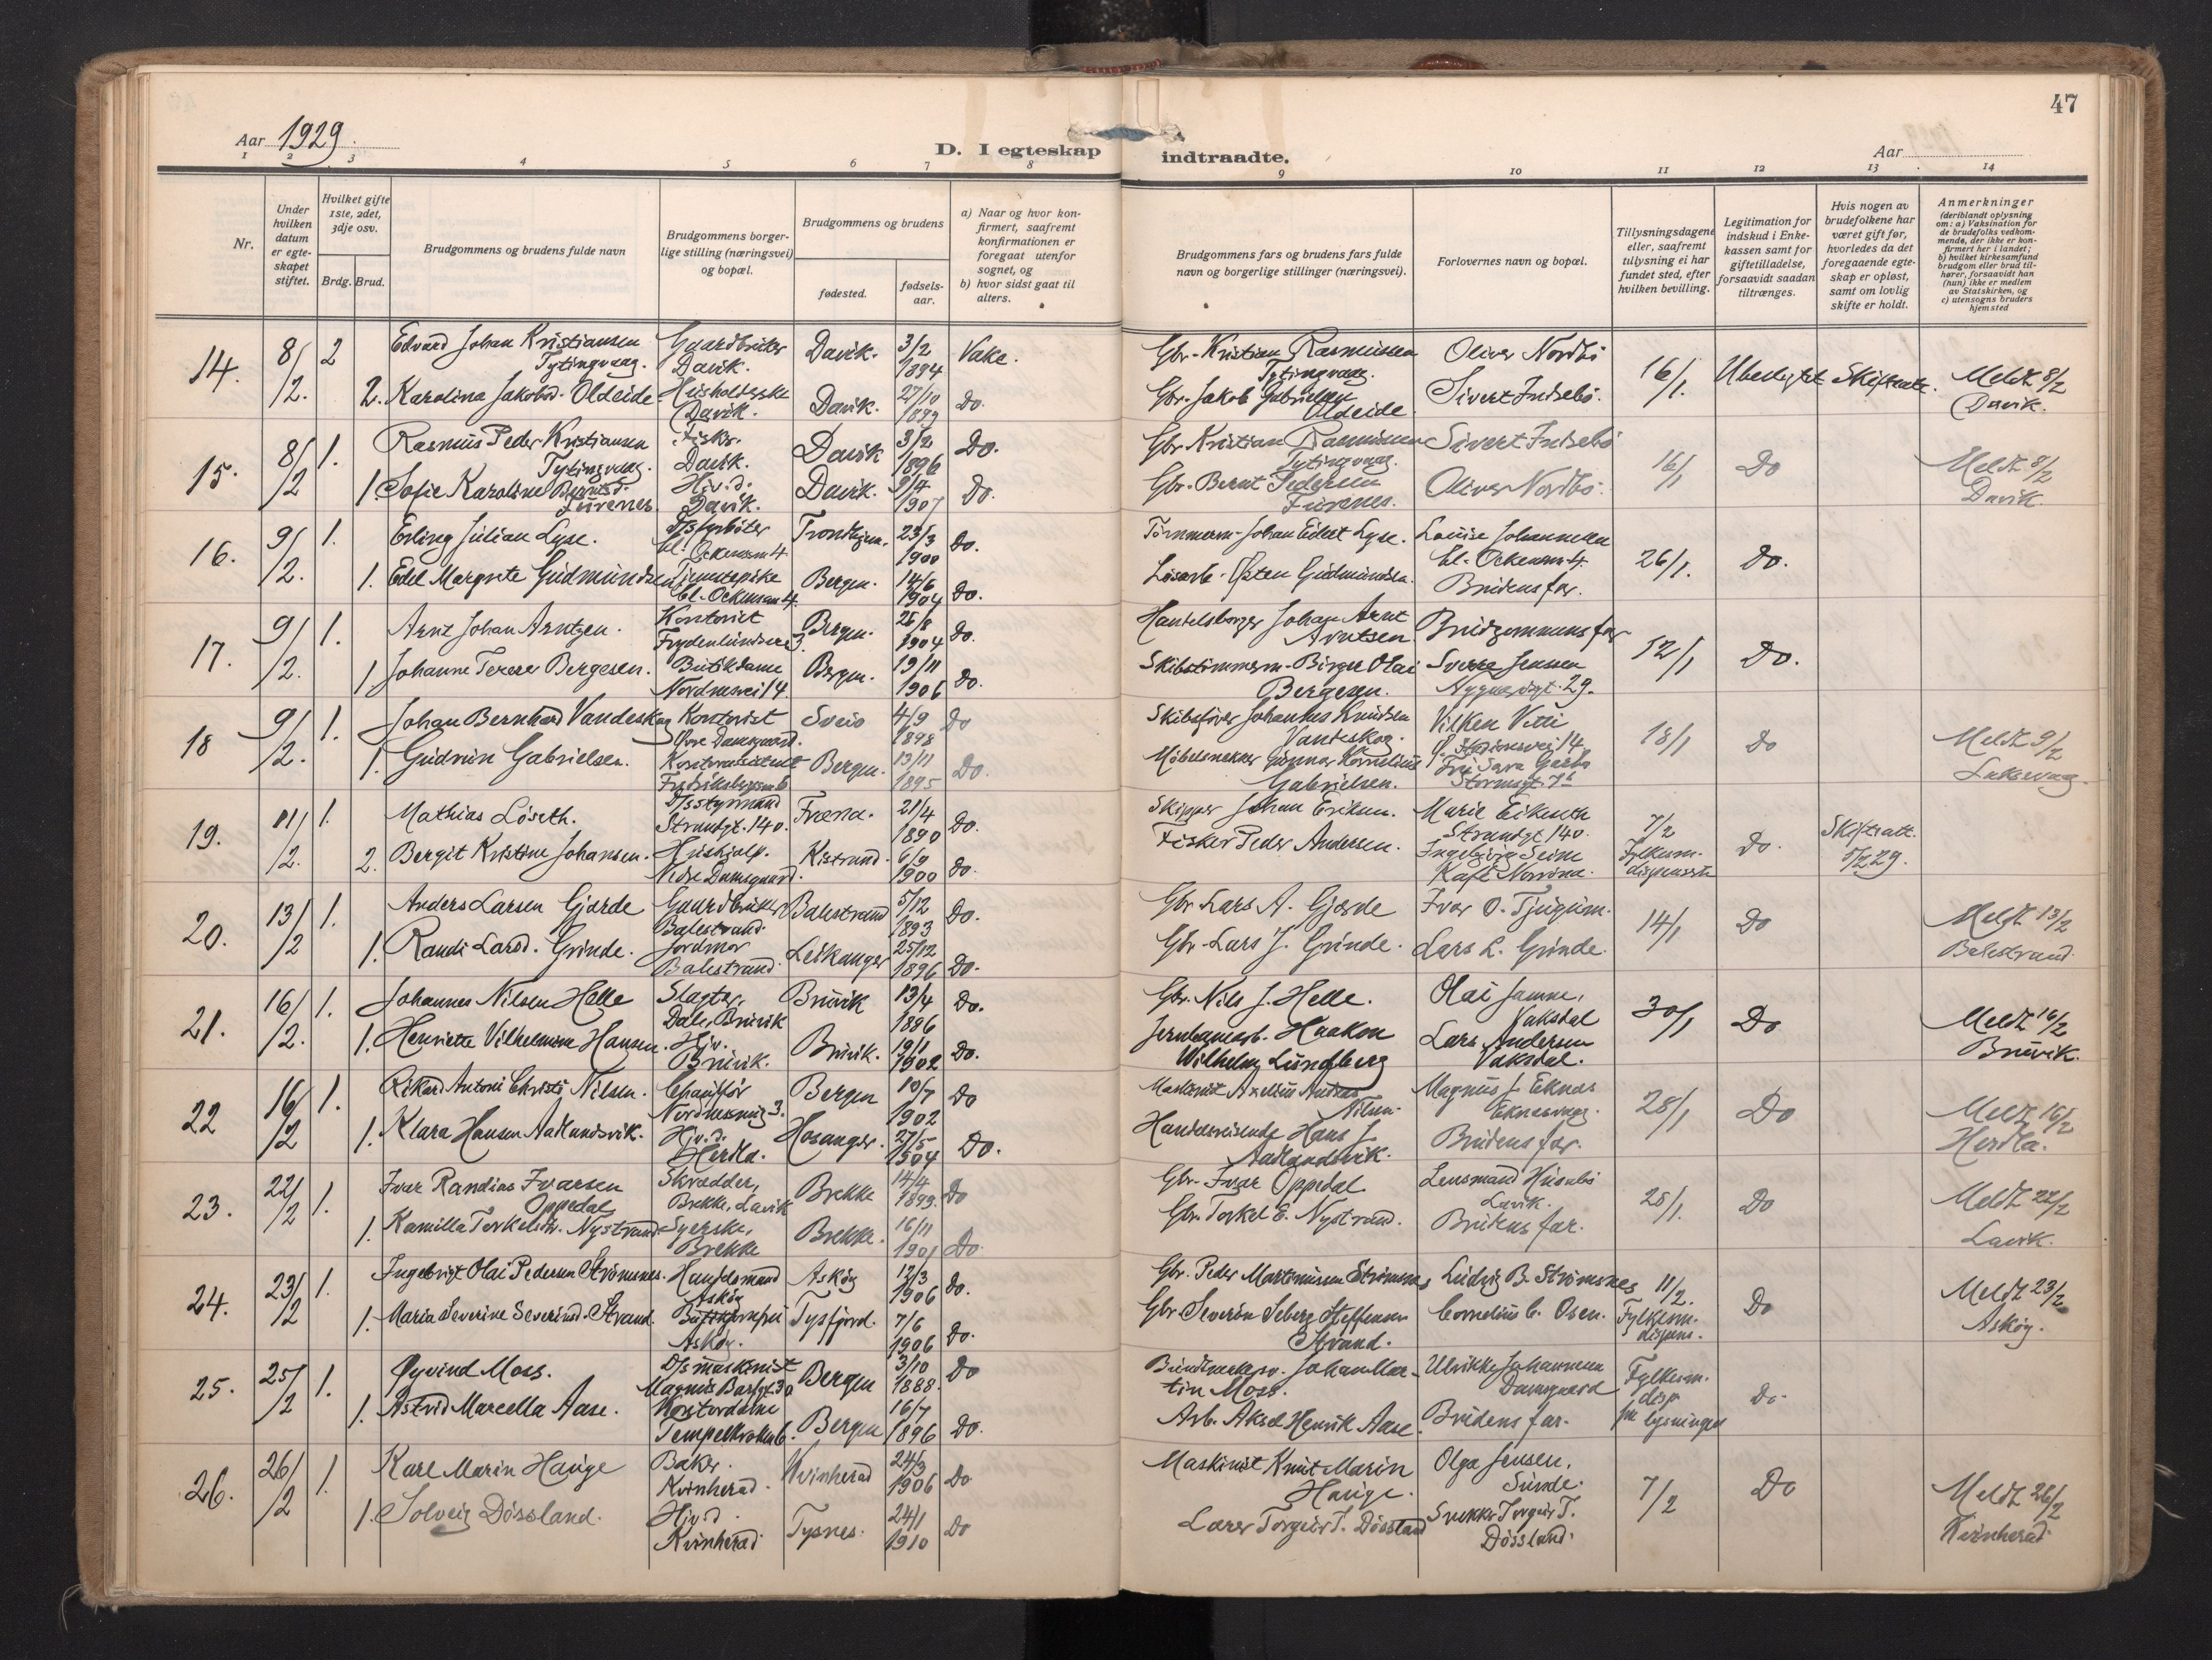 47
Aar 1929.
D. I egteskap indtraadte.
Aar
1 2 3 4 5 6 7 8 9 10 11 12 13 14
Nr.
Under hvilken datum er egteskapet stiftet.
Hvilket gifte 1ste, 2det, 3dje osv.
Brdg. Brud.
Brudgommens og brudens fulde navn
Brudgommens borgerlige stilling (næringsvei) og bopæl.
Brudgommens og brudens
fødested.
fødselsaar.
a) Naar og hvor konfirmert, saafremt konfirmationen er foregaat utenfor sognet, og
b) hvor sidst gaat til alters.
Brudgommens fars og brudens fars fulde navn og borgerlige stillinger (næringsvei).
Forlovernes navn og bopæl.
Tillysningsdagene eller, saafremt tillysning ei har fundet sted, efter hvilken bevilling.
Legitimation for indskud i Enkekassen samt for giftetilladelse, forsaavidt saadan tiltrænges.
Hvis nogen av brudefolkene har været gift før, hvorledes da det foregaaende egteskap er opløst, samt om lovlig skifte er holdt.
Anmerkninger (deriblandt oplysning om: a) Vaksination for de brudefolks vedkommende, der ikke er konfirmert her i landet; b) hvilket kirkesamfund brudgom eller brud tilhører, forsaavidt han (hun) ikke er medlem av Statskirken, og c) utensogns bruders hjemsted
14. 8/2. 2 Edvard Johan Kristiansen Tytingvaag. Gaardbruker Davik. Davik. 3/2 1894 Vake. Gbr. Kristian Rasmussen Tytingvaag. Oliver Nordbö 16/1. Ubesligtet Skifteatt. Meldt 8/2 Davik.
2. Karolina Jakobsd. Oldeide. Husholderske Davik. Davik. 27/10 1899 Do. Gbr. Jakob Gabrielsen Oldeide Sivert Indsebö.
15. 8/2 1. Rasmus Peder Kristiansen Tytingvaag. Fisker. Davik. Davik 3/2 1896 Do. Gbr Kristian Rasmussen Tytingvaag. Sivert Indsebö 16/1 Do Meldt 8/2 Davik.
1 Sofie Karoline Berntsd. Furenes. Hjv.d. Davik. Davik. 9/4 1907 Do. Gbr. Bernt Pedersen Furenes. Oliver Nordbö.
16. 9/2. 1. Erling Julian Lyse. D/s fyrböter Trondhjem. 23/3 1900 Do. Tömmerm. Johan Eidert Lyse. Louise Johannesen 26/1. Do.
1. Edel Margrete Gudmundsen Tjenestepike Cl. Ockenssm 4. Bergen. 14/6 1904 Do. Lösarb. Östen Gudmundsen. Brudens far.
17. 9/2. 1. Arnt Johan Arntzen. Kontorist Bergen. 25/8 1904 Do. Handelsborger Johan Arnt Arntsen Brudgommens far 12/1 Do.
1 Johanne Terese Bergesen. Butikdame Nordnesvei 14. Bergen. 19/11 1906 Do. Skibstömmerm. Birger Olai Bergesen. Sverre Jensen
18 9/2. 1. Johan Bernhard Vandeskog Kontorist Övre Damsgaard. Sveio 4/9 1898 Do Skibsförer Johannes Knudsen Vandeskog. 18/1 Do Meldt 9/2 Laksevag.
1. Gudrun Gabrielsen. Kontorassistent Bergen. 13/11 1895 Do. Möbelsnekker Gunnar Kornelius Gabrielsen.
19. 11/2. 1. Mathias Löseth. D/s styrmand Strandgt. 140. Fræna. 21/4 1890 Do. Skipper Johan Eriksen. Strandgt 140. 7/2 Fylkesm. dispensasn Do. Skifteatt. 5/2 29.
2. Bergit Kristine Johansen. Hushjælp. Nedre Damsgaard. Kistrand. 6/9 1900 Do. Fisker Peder Andersen. Ingebörg Seim
20. 13/2 1. Anders Larsen Gjærde Gaardbruker Balestrand. Balestrand 5/12 1893 Do. Gbr Lars A. Gjærde Ivar O. Tjugum. 14/1 Do Meldt 13/2 Balestrand.
1. Randi Larsd. Grinde. Jordmor Balestrand. Leikanger 25/12 1896 Do. Gbr. Lars J. Grinde. Lars L. Grinde.
21. 16/2. 1. Johannes Nilsen Helle Slagter, Dale, Bruvik Bruvik 13/4 1886 Do. Gbr. Nils J. Helle. Olai Jamne, Vaksdal 30/1 Do Meldt 16/2 Bruvik.
1. Henriette Vilhelmine Hansen. Hjv. Bruvik. Bruvik. 19/1 1902 Do. Jernbanearb. Haakon Wilhelm Lundberg Lars Andersen Vaksdal.
22 16/2 1. Rikard Antoni Christi Nilsen. Chauffør Nordnesveig 3. Bergen 10/7 1902 Do Maskinist Axelius Andreas Nilsen. Magnus J. Eknes Eknesvaag. 28/1 Do Meldt 16/2 Herdla.
1. Klara Hansen Aadlandsvik. Hjv.d. Herdla. Hosanger. 27/5 1904 Do. Handelsreisende Hans J. Aadlandsvik. Brudens far.
23. 22/2 1. Ivar Randias Ivarsen Oppedal Skrædder, Brekke, Lavik Brekke 14/4 1899. Do Gbr. Ivar Oppedal Lensmand Husabö Lavik. 25/1. Do Meldt 22/2 Lavik.
1. Kamilla Torkelsdtr. Nystrand. Syerske, Brekke Brekke. 16/11 1901 Do. Gbr. Torkel E. Nystrand. Brudens far.
24. 23/2 1. Ingebrigt Olai Pedersen Strömsnes. Handelsmand Asköy Asköy 12/3 1906 Do. Gbr. Peder Martinussen Strömsnes Ludvig B. Strömsnes 11/2. Fylkesm. dispens. Do Meldt 23/2 Asköy.
1. Maria Severine Severinsd. Strand. Butikjomfru Asköy. Tysfjord. 7/6 1906 Do. Gbr Severin Seberg Steffensen Strand. Cornelius C. Osen.
25. 25/2 1. Øyvind Moss. D/s maskinist Magnus Barfgt 30 Bergen 3/10 1888. Do Johan Martin Moss. Ulrikke Johannesen Damsgaard Fylkesm. disp. fra lysningen Do.
1. Astrid Marcella Aase. Kontordame Bergen 16/7 1896 Do. Arb. Aksel Henrik Aase. Brudens far.
26. 26/2 1. Karl Marin Hauge Baker. Kvinherad. Kvinherad 24/3 1906 Do Maskinist Knut Marin Hauge. Olga Jensen, Sunde. 7/2 Do Meldt 26/2 Kvinherad.
1. Solveig Dössland. Hjv.d. Kvinherad. Tysnes. 24/1 1910 Do Lærer Torgeir T. Dössland Snekker Torgeir T. Dössland.